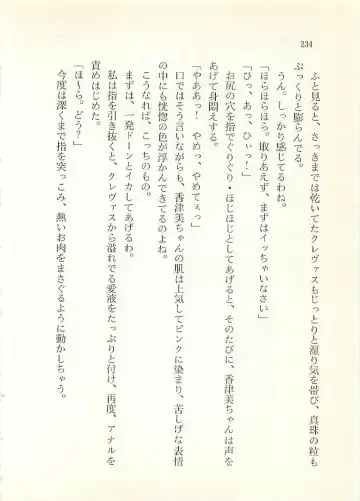 234
ふと見ると、さっきまでは乾いてたクレヴァスもじっとりと湿り気を帯び、真珠の粒も
ぷっくりと膨らんでる。
うん。しっかり感じてるわね。
「ほらほらほら。取りあえず、まずはイッちゃいなさい」
「ひっ、あっ、ひぃっ」
お尻の穴を指でぐりぐり・ほじほじとしてあげると、そのたびに、香津美ちゃんは声を
あげて身悶えする。
「やああっ! やめっ、やめてぇっ」
口ではそう言いながらも、香津美ちゃんの肌は上気してピンクに染まり、苦しげな表情
の中にも恍惚の色が浮かんできてるのよね。
こうなれば、こっちのもの。
まずは、一発ドーンとイカしてあげるわ。
私は指を引き抜くと、クレヴァスから溢れでる愛液をたっぷりと付け、再度、アナルを
責めはじめた。
「ほ〜ら。どう?」
今度は深くまで指を突っこみ、熱いお肉をまさぐるように動かしちゃう。